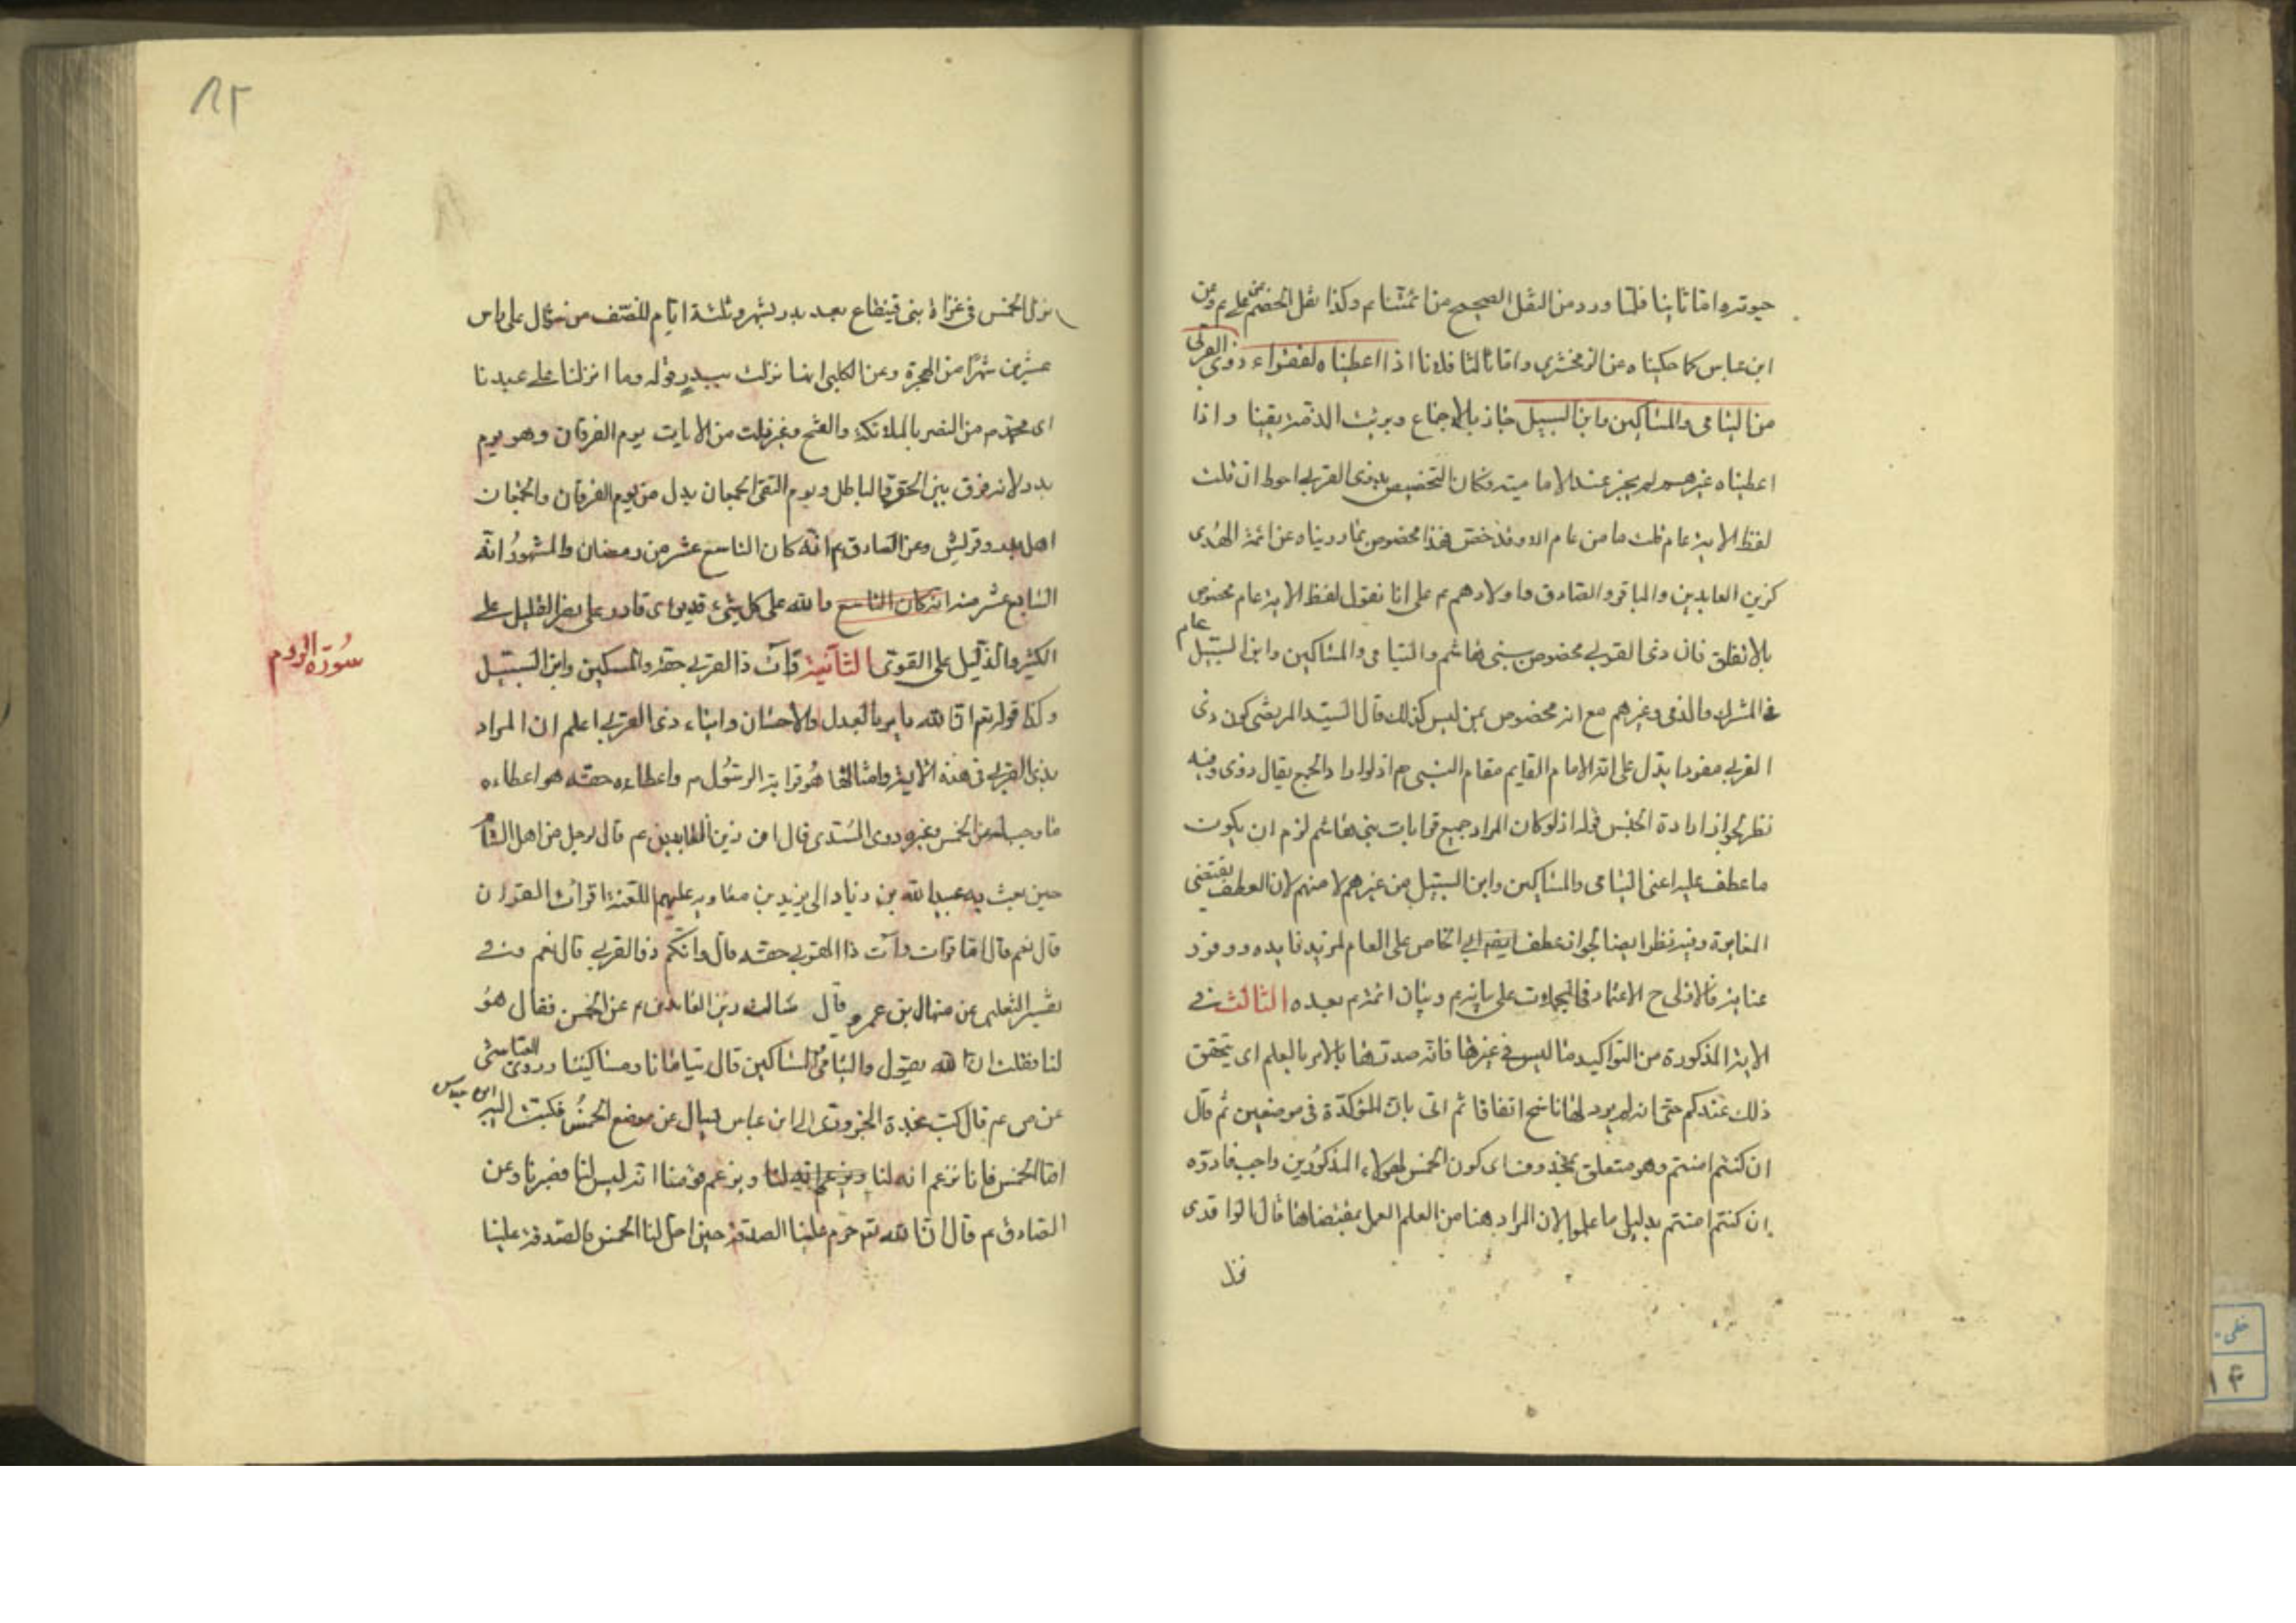 حيوته واما ثانيا فلما ورد من النقل الصحيح من ائمتنا م وكذا نقل الخصم عن علي م وعن
ابن عباس كما حكيناه عن الزمخشري واما ثالثا فلانا اذا اعطيناه لفقراء ذوي القربى
من اليتامى والمساكين وابن السبيل جاز بالاجماع وبرئت الذمة يقينا واذا
اعطيناه غيرهم لم يجز عند الامامية فكان التخصيص بذي القربى احوط ان قلت
لفظ الاية عام قلت ما من عام الا وقد خص فهذا مخصوص بما رويناه عن ائمة الهدى
كزين العابدين والباقر والصادق واولادهم م على انا نقول لفظ الاية عام مخصوص
بالاتفاق فان ذي القربى مخصوص ببني هاشم واليتامى والمساكين وابن السبيل عام
في المشرك والذمي وغيرهم مع انه مخصوص بمن ليس كذلك قال السيد المرتضى كون ذي
القربى مفردا يدل على انه الامام القايم مقام النبي م اذ لو اراد الجمع لقال ذوي وفيه
نظر لجواز ارادة الجنس قوله اذ لو كان المراد جميع قرابات بني هاشم لزم ان يكون
ما عطف عليه اعني اليتامى والمساكين وابن السبيل من غيرهم لا منهم لان العطف يقتضي
المغايرة وفيه نظر ايضا لجواز عطف الخاص على العام لمزيد فايده ووفور
عناية فالاولى ح الاعتماد في على بيانه م وبيان ائمته م بعده الثالث في
الاية المذكورة من التواكيد ما ليس في غيرها فانه صدرها بالامر بالعلم اى يتحقق
ذلك عندكم حتى انه لم يرد لها ناسخ اتفاقا ثم اتى بان المؤكدة في موضعين ثم قال
ان كنتم امنتم وهو متعلق بمحذوف اى كون الخمس لهؤلاء المذكورين واجب فادوه
ان كنتم امنتم بدليل ما علموا لان المراد هنا من العلم العمل بمقتضاه قالوا قدى
نزل الخمس في غزاة بني قينقاع بعد بدر بشهر وثلثة ايام للنصف من شوال على راس
عشرين شهرا من الهجرة وعن الكلبى انها نزلت ببدر قوله وما انزلنا على عبدنا
اى محمد م من النصر بالملائكة والفتح وغير ذلك من الايات يوم الفرقان وهو يوم
بدر لانه فرق بين الحق والباطل ويوم التقى الجمعان بدل من يوم الفرقان والجمعان
اهل بدر وقريش وعن الصادق م انه كان التاسع عشر من رمضان والمشهور انه
السابع عشر منه انه كان التاسع والله على كل شيء قدير اى قادر على نصر القليل على
الكثير والذليل على القوى الثانية وآت ذا القربى حقه والمسكين وابن السبيل
سورة الروم
وكذا قوله تعم ان الله يامر بالعدل والاحسان وايتاء ذى القربى اعلم ان المراد
بذى القربى في هذه الاية وامثالها هو قرابة الرسول م واعطاءه حقه هو اعطاءه
ما وجب له من الخمس وغيره روى السدى قال ان زين العابدين م قال لرجل من اهل الشام
حين بعث به عبيد الله بن زياد الى يزيد بن معاويه عليهم اللعنة اقرات القران
قال نعم قال اما قرات وآت ذا القربى حقه قال وانكم ذو القربى قال نعم وفي
تفسير الثعلبى عن منهال بن عمرو قال سالت زين العابدين م عن الخمس فقال هو
لنا فقلت ان الله يقول واليتامى والمساكين قال يتامانا ومساكيننا وروى العياشى
عن ص م قال كتب نجدة الحرورى الى ابن عباس يسال عن موضع الخمس فكتب اليه ابن عباس
اما الخمس فانا نزعم انه لنا ويزعم انه لنا ويزعم قومنا انه ليس لنا فصبرنا وعن
الصادق م قال ان الله تعم حرم علينا الصدقة حين احل لنا الخمس فالصدقة علينا